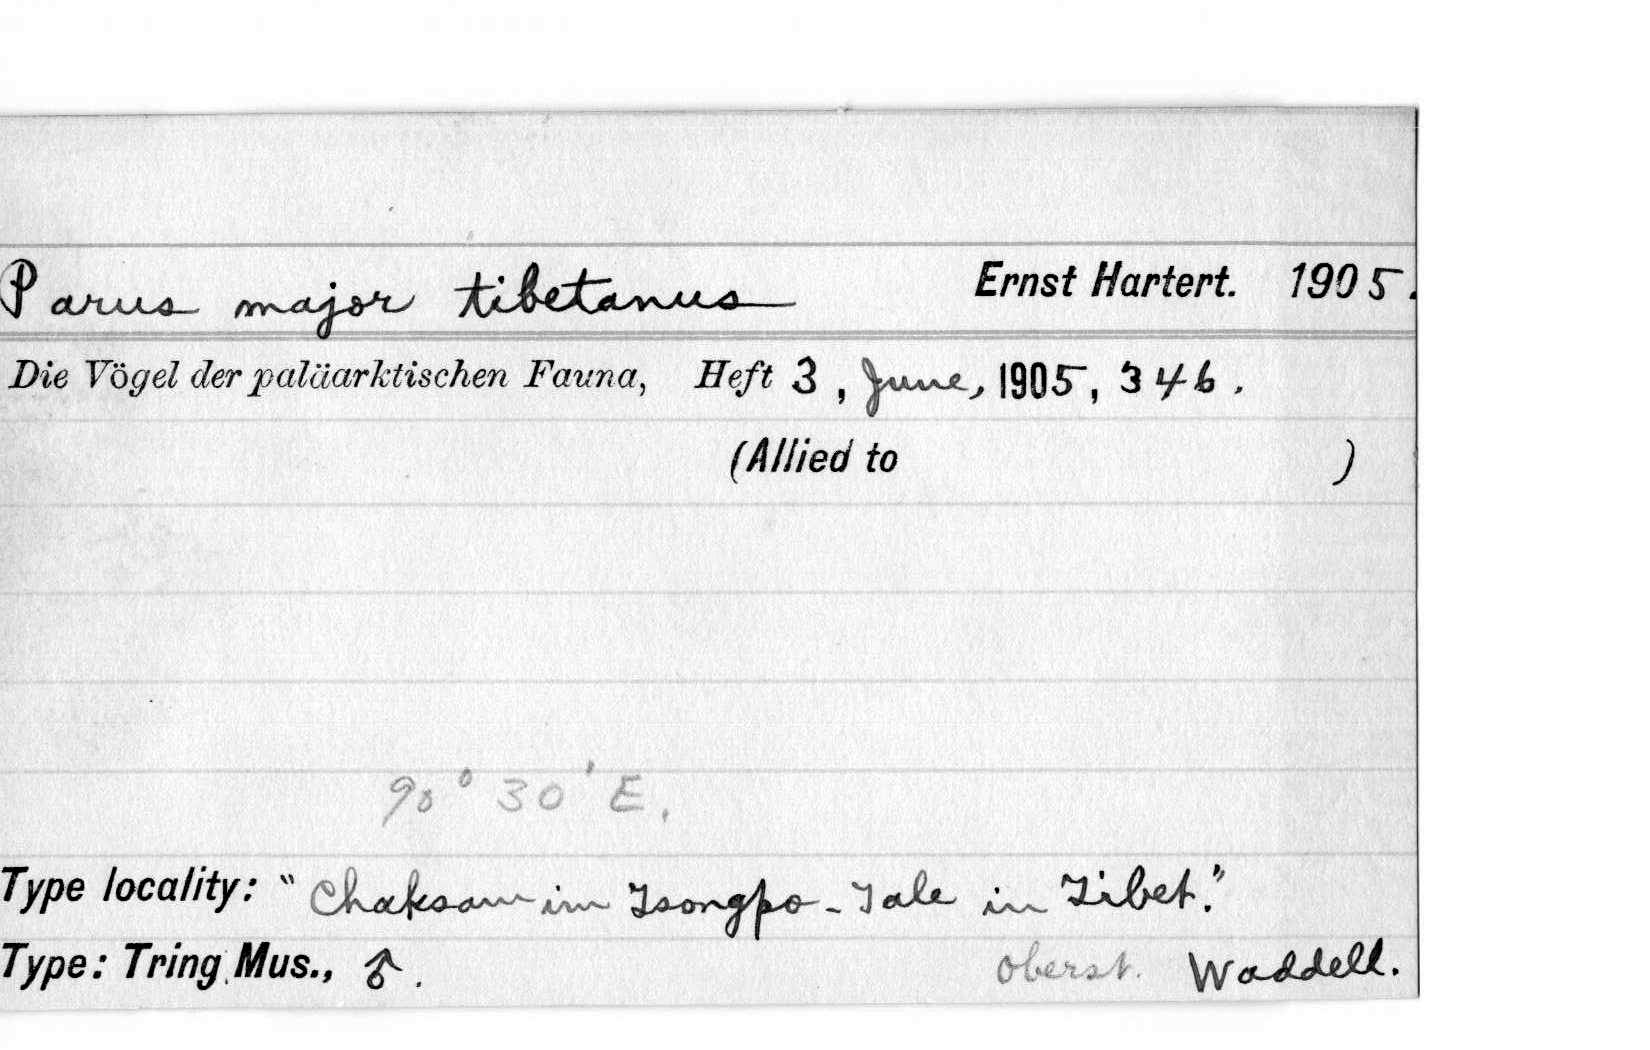 Parus major tibetanus Ernst Hartert. 1905.
Die Vögel der paläarktischen Fauna, Heft 3, June, 1905, 346.
(Allied to )
90° 30' E.
Type locality: "Chaksam im Tsongpo-Tale in Tibet."
Type: Tring Mus., ♂. Oberst. Waddell.